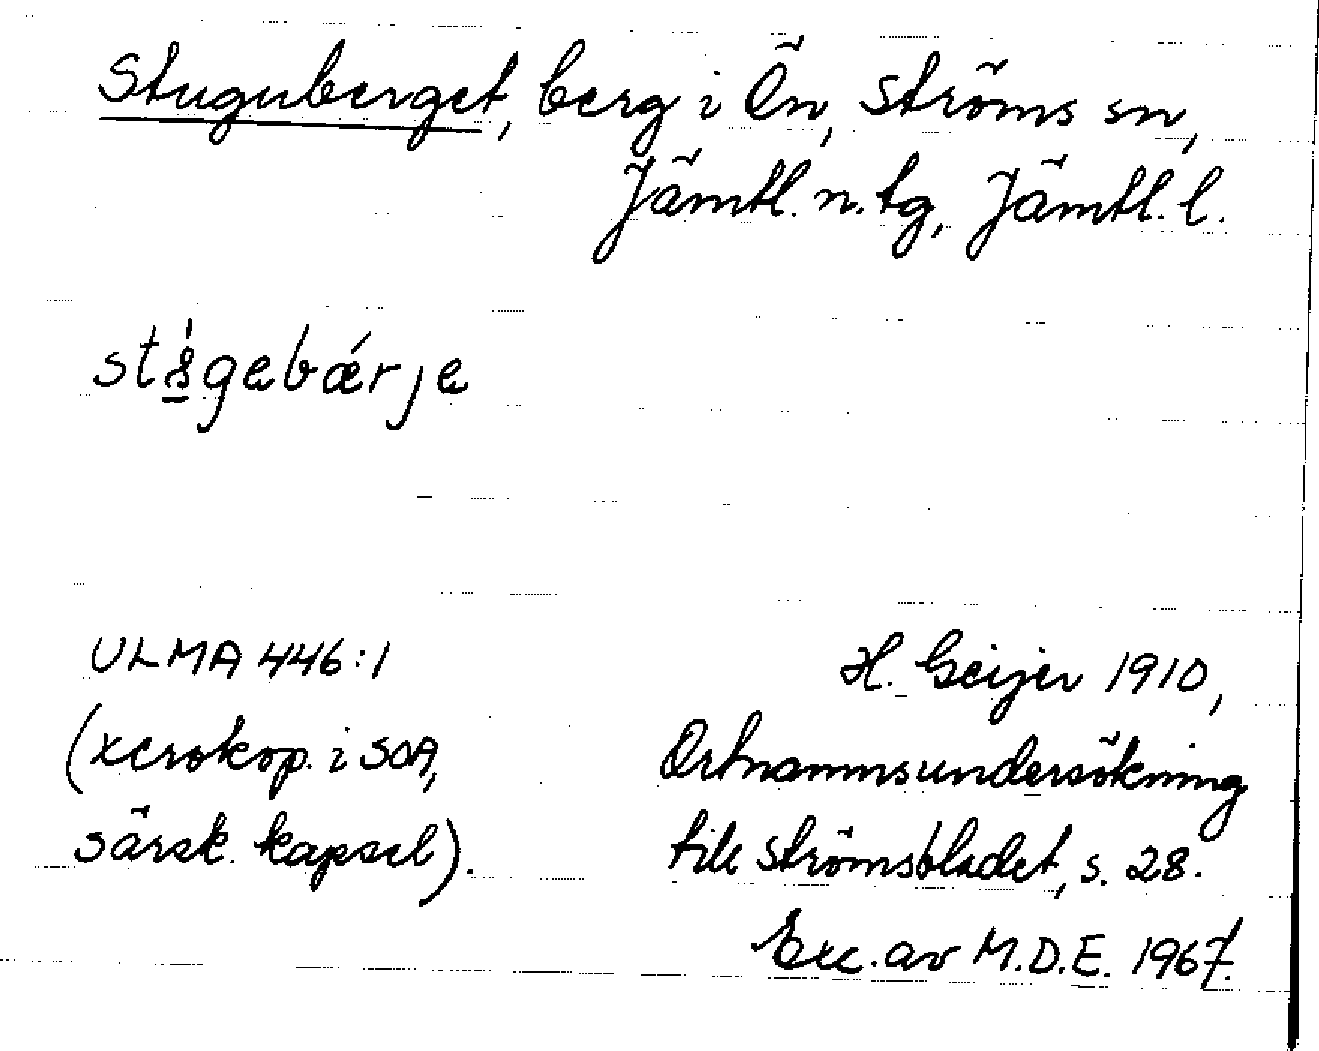 Stuguberget, berg i Ön, Ströms sn,
Jämtl. n. tg, Jämtl. l.
ULMA 446:1
(xerokop. i SOA,
särsk. kapsel).
H. Geijer 1910,
Ortnamnsundersökning
till Strömsbladet, s. 28.
Exc. av M.D.E. 1967.